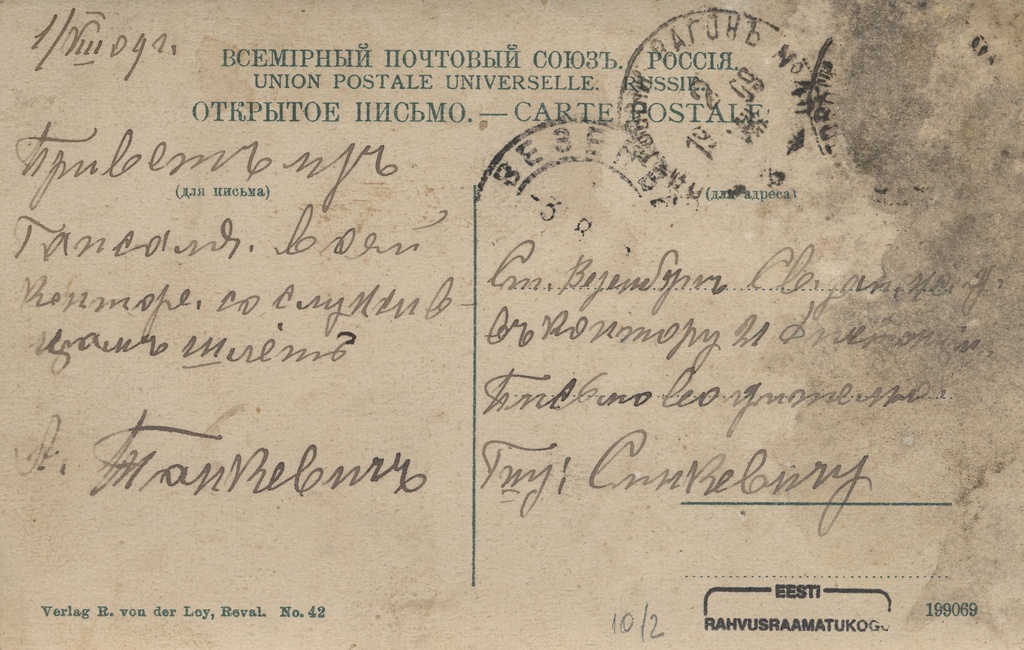 1/VIII 09 г.
ВСЕМІРНЫЙ ПОЧТОВЫЙ СОЮЗЪ. РОССІЯ.
UNION POSTALE UNIVERSELLE. RUSSIE
ОТКРЫТОЕ ПИСЬМО. — CARTE POSTALE
ВАГОНЪ
ВЕЗЕНБ
3 8
(для письма)
(для адреса)
Приветъ изъ
Гапсаля. всей
Конторе. со служив-
цамъ шлётъ
А. Танкевичъ
Ст. Везенбергъ
Въ контору 21
Письмоводителю
Гну! Синкевичу
Verlag R. von der Ley, Reval. No. 42
10/2
EESTI
RAHVUSRAAMATUKOGU
199069